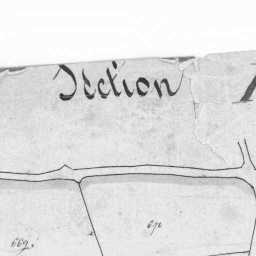 Section
670
669.